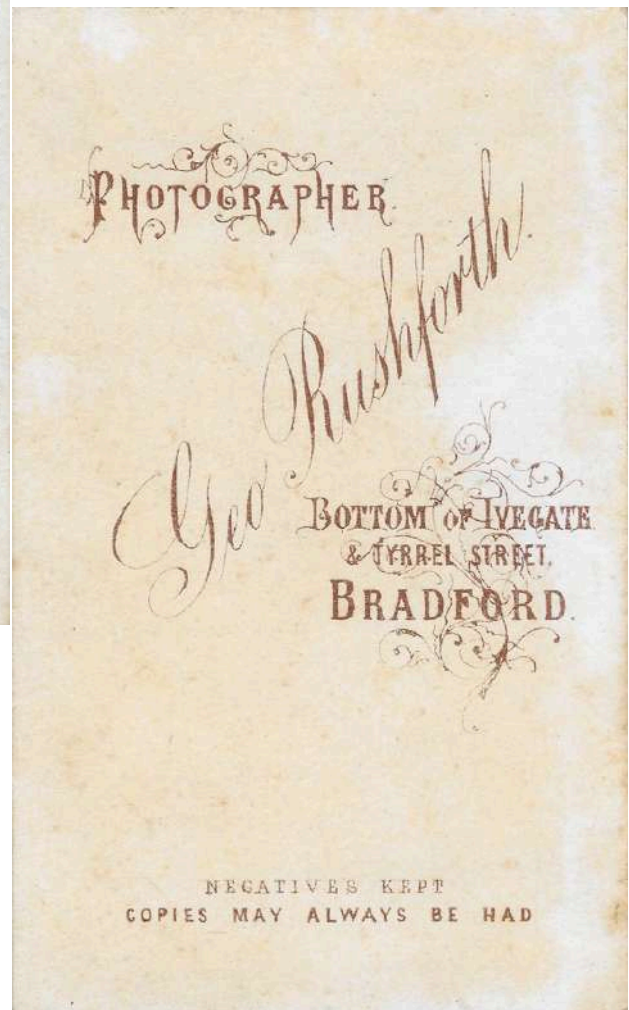 PHOTOGRAPHER.
Geo Rushforth.
BOTTOM OF IVEGATE
& TYRREL STREET.
BRADFORD.
NEGATIVES KEPT
COPIES MAY ALWAYS BE HAD